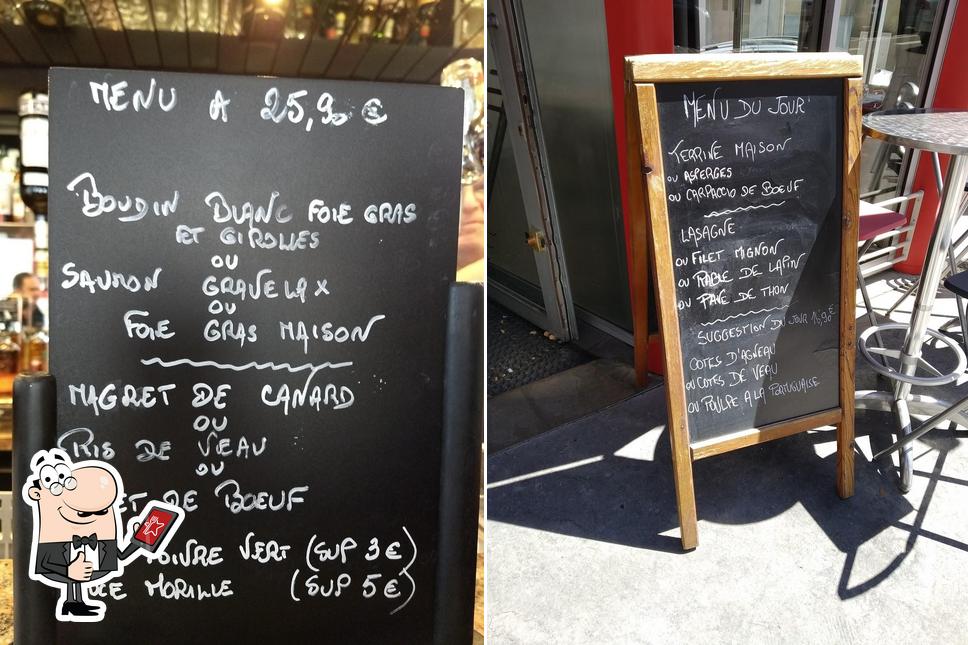 MENU A 25,90 €
BOUDIN BLANC FOIE GRAS
ET GIROLLES
OU
SAUMON GRAVELAX
OU
FOIE GRAS MAISON
MAGRET DE CANARD
OU
RIS DE VEAU
OU
DE BOEUF
POIVRE VERT (SUP 3 €)
MORILLE (SUP 5 €)
MENU DU JOUR
TERRINE MAISON
OU ASPERGES
OU CARPACCIO DE BOEUF
LASAGNE
OU FILET MIGNON
OU RABLE DE LAPIN
OU PAVE DE THON
SUGGESTION DU JOUR 16,90 €
COTES D'AGNEAU
OU COTES DE VEAU
OU POULPE A LA PORTUGAISE